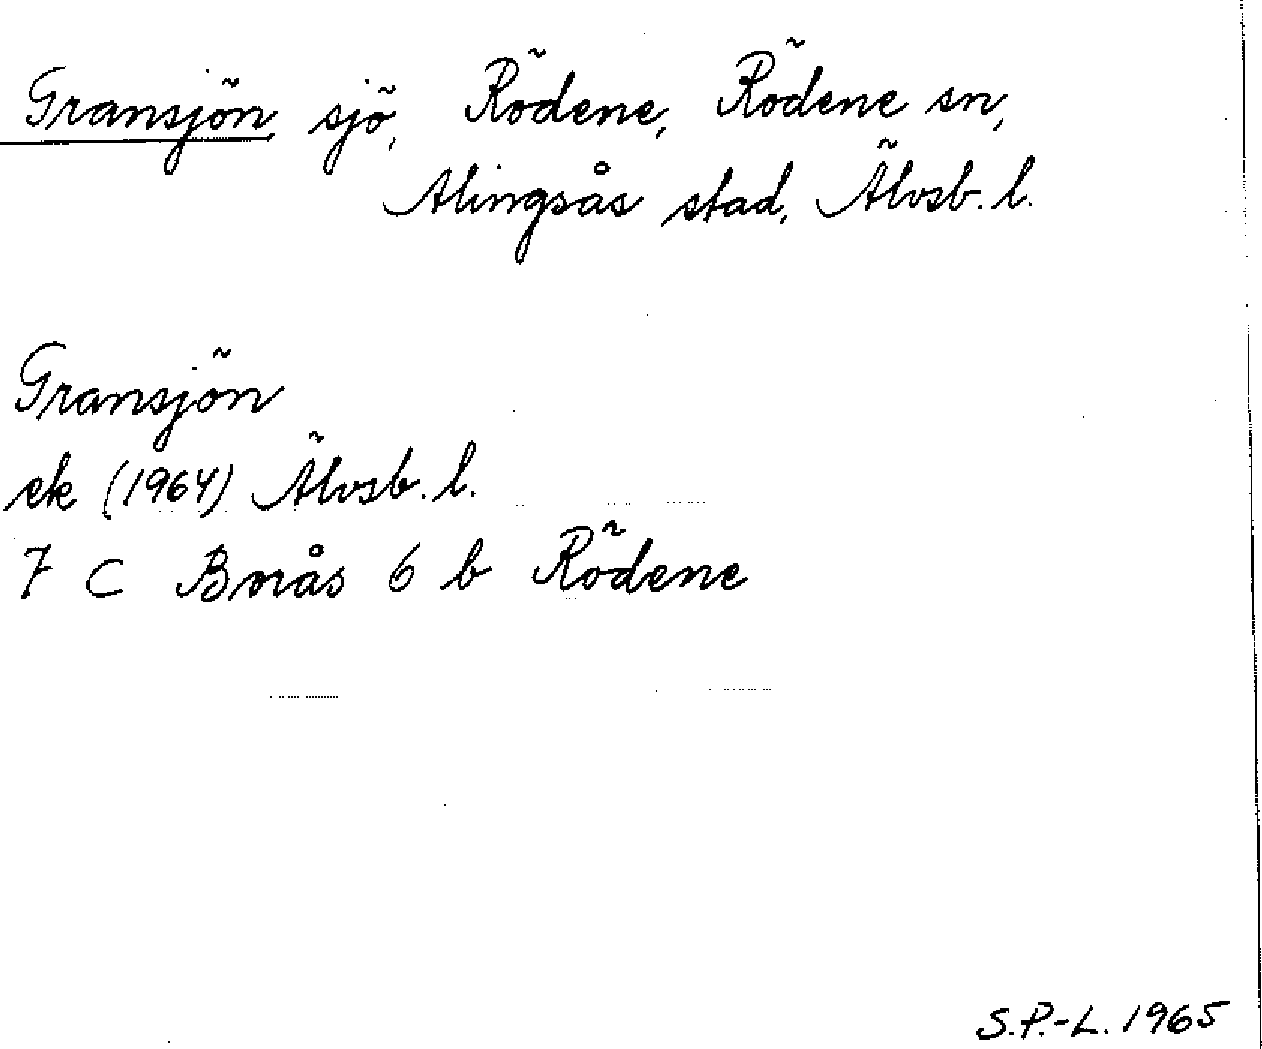 Gransjön sjö, Rödene, Rödene sn,
Alingsås stad, Älvsb. l.
Gransjön
ek (1964) Älvsb. l.
7 C Borås 6 b Rödene
S.P.-L. 1965